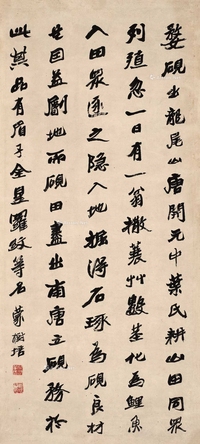 婺硯出龍尾山唐開元中葉氏耕山田同眾
列殖忽一日有一翁撒蓑艸數莖化為鯉魚
入田眾逐之隐入地掘得石琢為硯良材
世因益劚地而硯田盡出南唐立硯務於
此其品有眉子金星羅紋等名 蒙樹培